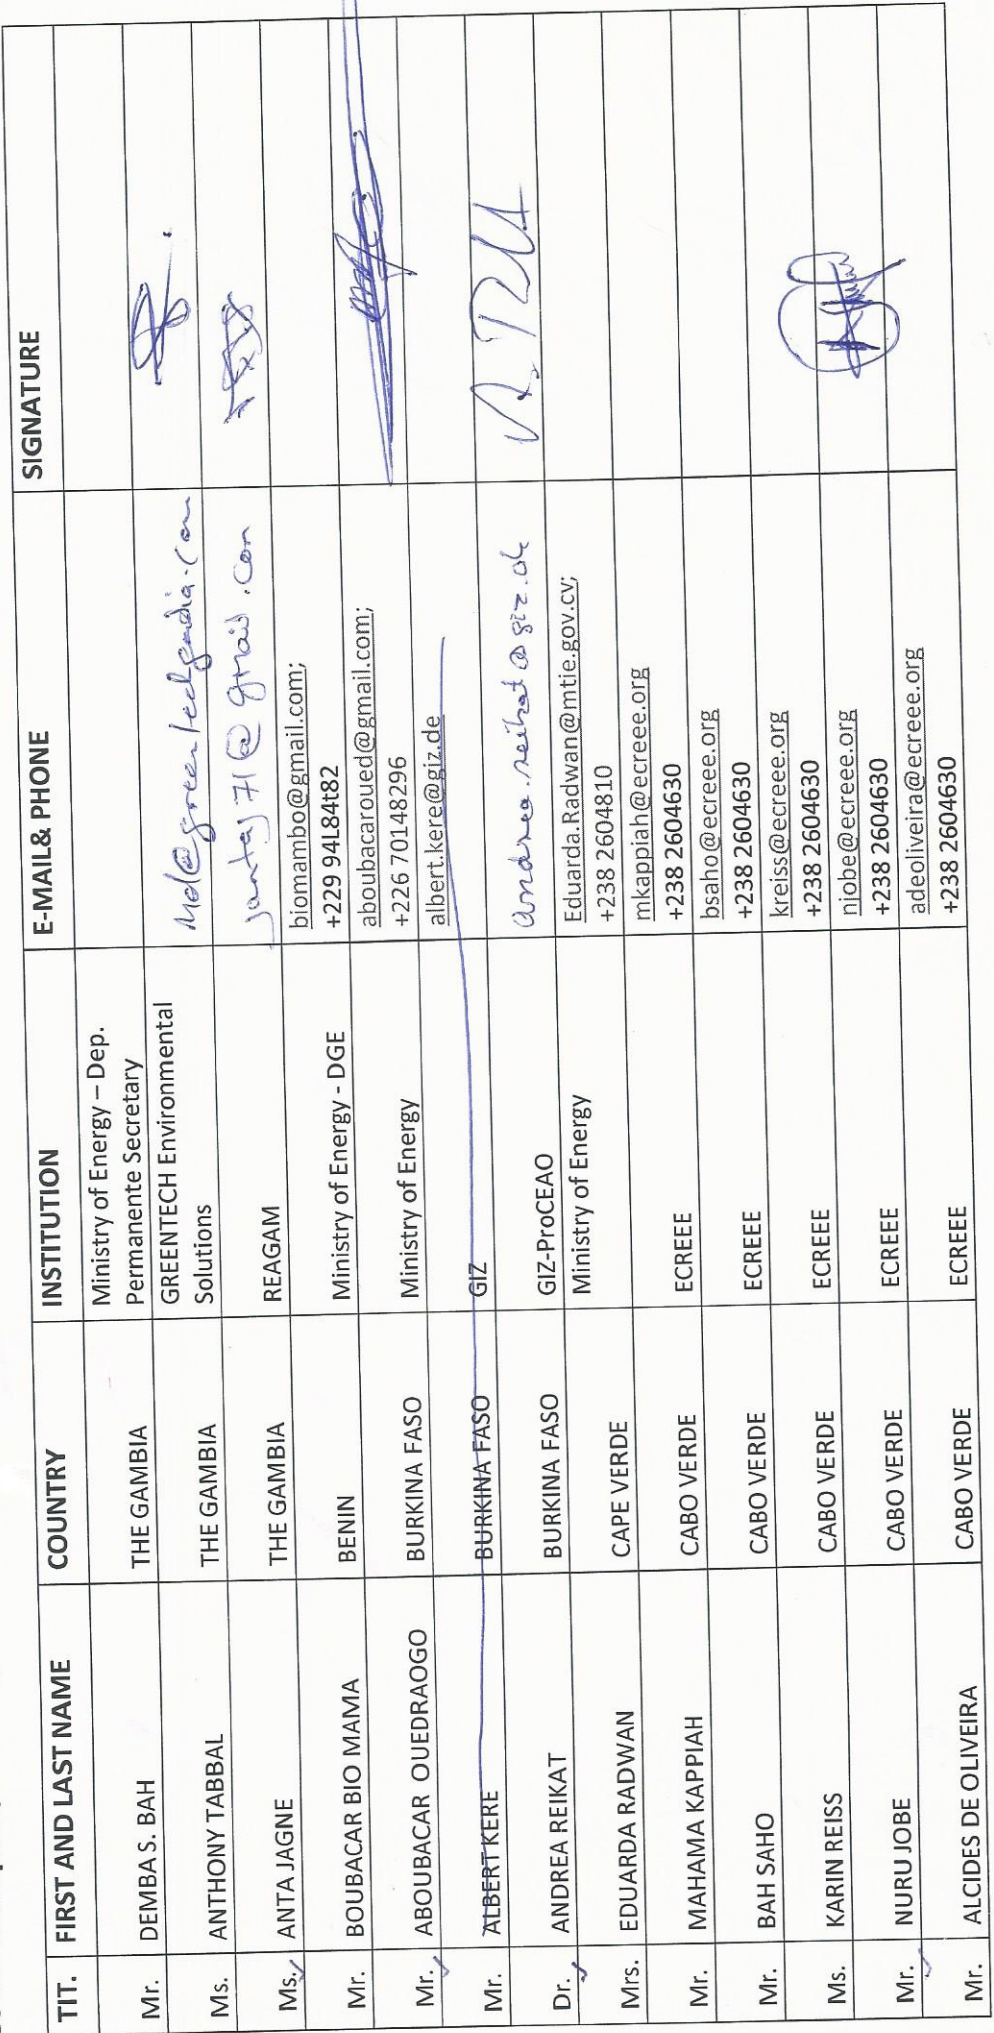 TIT. FIRST AND LAST NAME COUNTRY INSTITUTION E-MAIL& PHONE SIGNATURE
Mr. DEMBA S. BAH THE GAMBIA Ministry of Energy – Dep.
Permanente Secretary
Ms. ANTHONY TABBAL THE GAMBIA GREENTECH Environmental
Solutions
Ms. ANTA JAGNE THE GAMBIA REAGAM
Mr. BOUBACAR BIO MAMA BENIN Ministry of Energy - DGE biomambo@gmail.com;
+229 94L84t82
Mr. ABOUBACAR OUEDRAOGO BURKINA FASO Ministry of Energy aboubacaroued@gmail.com;
+226 70148296
Mr. ALBERT KERE BURKINA FASO GIZ albert.kere@giz.de
Dr. ANDREA REIKAT BURKINA FASO GIZ-ProCEAO andrea.reikat@giz.de
Mrs. EDUARDA RADWAN CAPE VERDE Ministry of Energy Eduarda.Radwan@mtie.gov.cv;
+238 2604810
Mr. MAHAMA KAPPIAH CABO VERDE ECREEE mkappiah@ecreee.org
+238 2604630
Mr. BAH SAHO CABO VERDE ECREEE bsaho@ecreee.org
+238 2604630
Ms. KARIN REISS CABO VERDE ECREEE kreiss@ecreee.org
+238 2604630
Mr. NURU JOBE CABO VERDE ECREEE njobe@ecreee.org
+238 2604630
Mr. ALCIDES DE OLIVEIRA CABO VERDE ECREEE adeoliveira@ecreee.org
+238 2604630